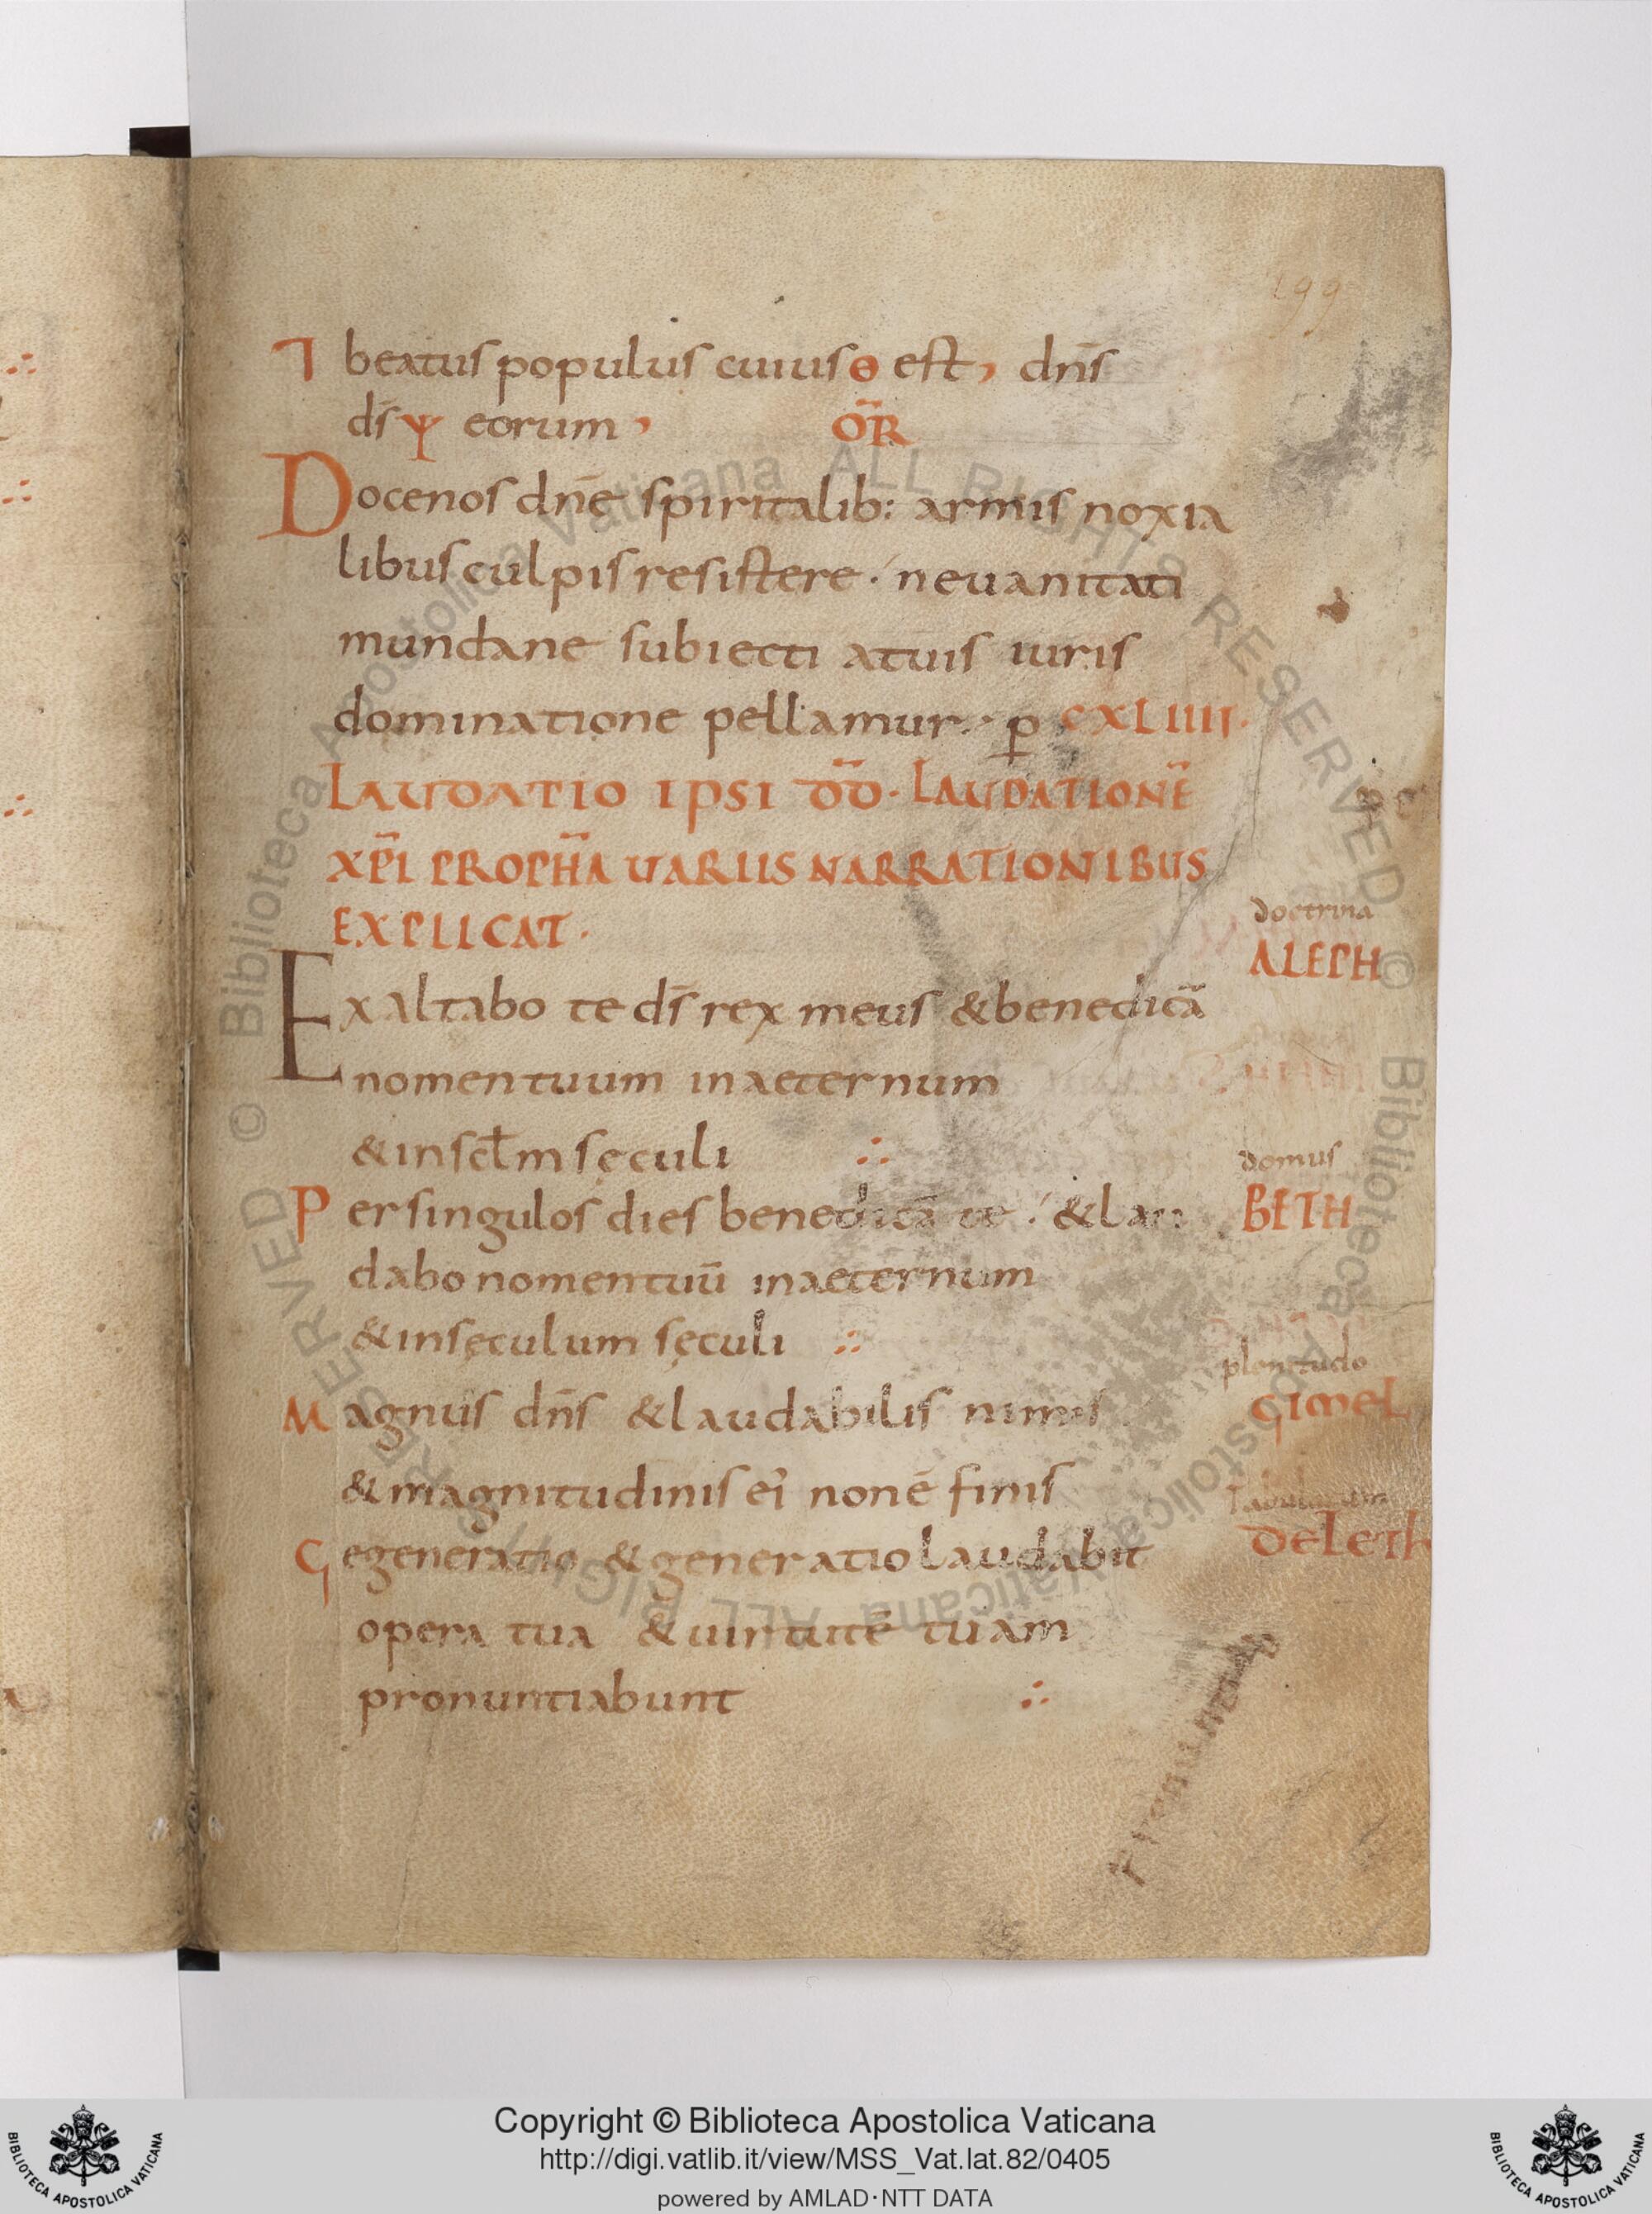 199
⁊ beatus populus cuius Θ est, dn̄s
ds̄ Ψ eorum,
OR̄
Docenos dn̄e spiritalib: armis noxia
libus culpis resistere. ne uanitati
mundane subiecti a tuis iuris
dominatione pellamur. p̱ CXLIIII.
LAUDATIO IPSI DD̄. LAUDATIONĒ
XP̄I PROPH̄A UARIIS NARRATIONIBUS
EXPLICAT.
doctrina
ALEPH
Exaltabo te ds̄ rex meus & benedicā
nomen tuum in aeternum
& in sclm̄ sęculi ∴
domus
BETH
Per singulos dies benedicā te. & lau
dabo nomen tuū in aeternum
& in sęculum sęculi ∴
plenitudo
GIMEL
Magnus dn̄s & laudabilis nimis
& magnitudinis ei' non ē finis
DELETH
Gegeneratio & generatio laudabit
opera tua & uirtutē tuam
pronuntiabunt ∴
Copyright © Biblioteca Apostolica Vaticana
http://digi.vatlib.it/view/MSS_Vat.lat.82/0405
powered by AMLAD·NTT DATA
BIBLIOTECA APOSTOLICA VATICANA
BIBLIOTECA APOSTOLICA VATICANA
Biblioteca Apostolica Vaticana ALL RIGHTS RESERVED ©
Biblioteca Apostolica Vaticana ALL RIGHTS RESERVED ©